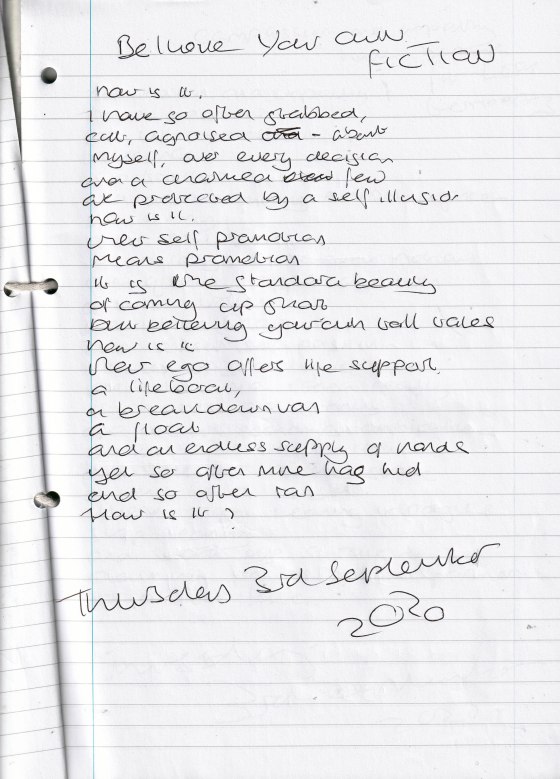 Believe Your own
FICTION
how is it.
I have so often grabbed,
cut, agonised - about
myself, over every decision
and a charmed few
are protected by a self illusion
how is it.
their self promotion
means promotion
it is the standard beauty
of coming up short
but believing your own
how is it
their ego offers life support
a lifeboat,
a breakdown van
a float
and an endless supply of hands
yet so often mine has hid
and so often ran
How is it ?
Thursday 3rd September
2020